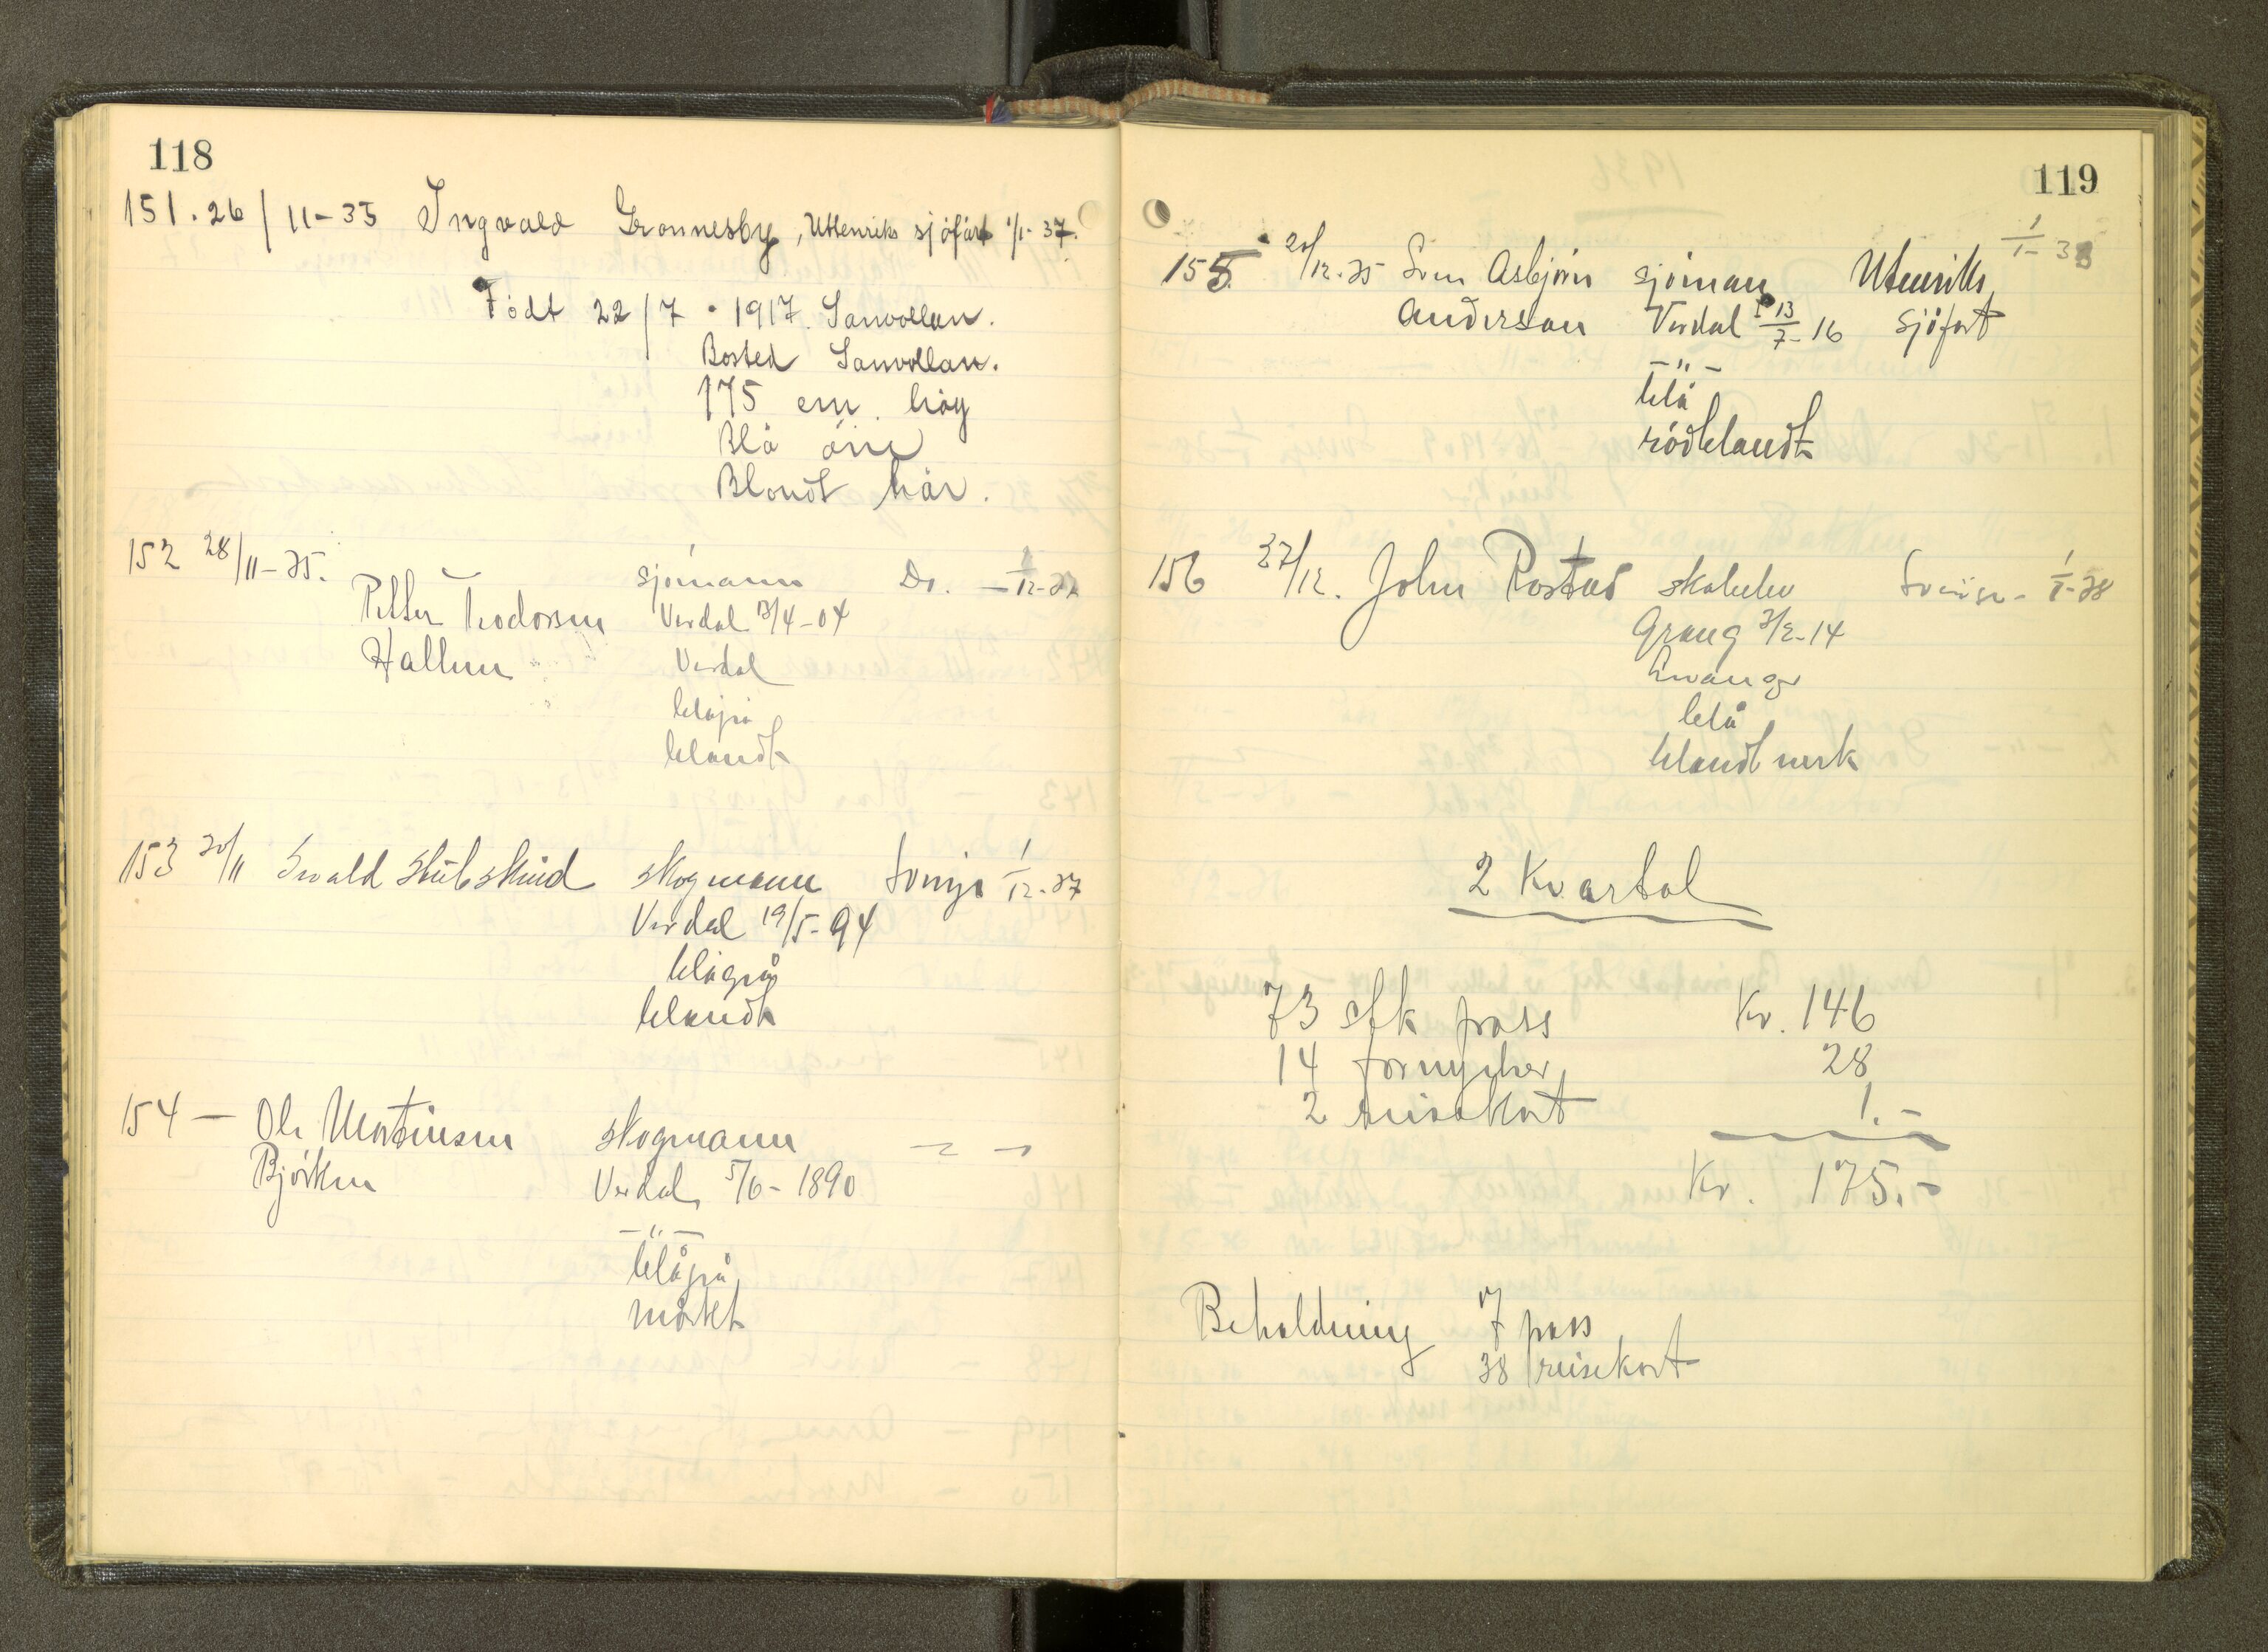 118
151. 26/11-35 Ingvald Grønnesby, Uttenriks sjöfart 1/1-37.
Födt 22/7 . 1917.
Bosted
175 cm. høy
Blå öine
Blondt hår.
152 28/11-35. sjömann Do. 12-37
Petter Teodorsen Verdal 13/4-04
Hallem Verdal
blågrå
blondt
153 30/11 skogmann Sverige 1/12-37
Verdal 19/5-94
blågrå
blondt
154 — Ole Martinsen skogmann
Björken Verdal 5/6-1890
—"—
blågrå
mörkt
119
155 20/12-35 Sven Asbjörn sjöman Utenriks 1/1-38
Anderson Verdal 13/7-16 sjöfart
—"—
blå
rödblondt
156 27/12. John Rostad 1/1-38
3/2-14
blå
blondt mørk
2 Kvartal
73 stk pass Kr. 146
14 fornyelser 28
2 reisekort 1.-
Kr. 175.-
Beholdning 7 pass
38 reisekort